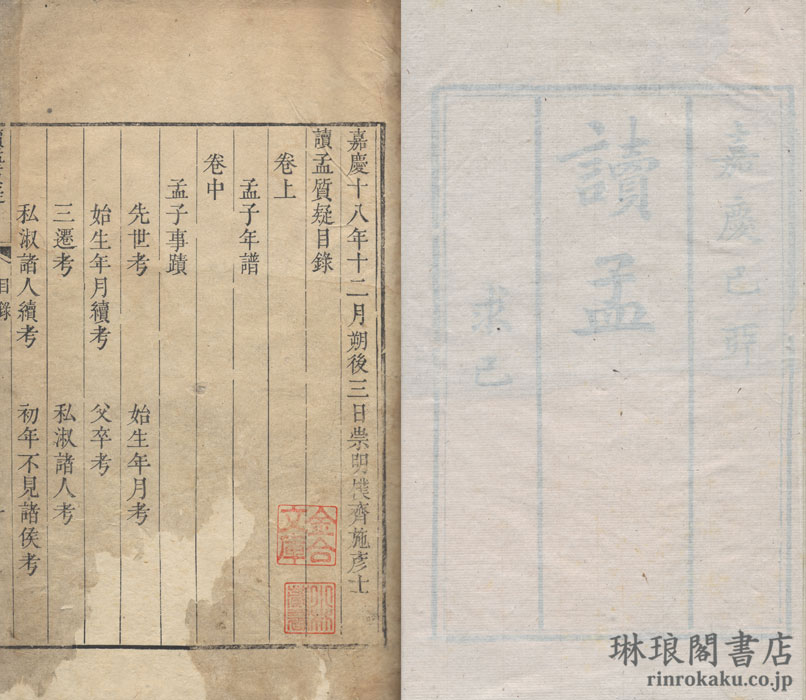 嘉慶己卯
讀孟
求己
嘉慶十八年十二月朔後三日崇明樸齊施彦士
讀孟質疑目錄
卷上
孟子年譜
卷中
孟子事蹟
先世考 始生年月考
始生年月續考 父卒考
三遷考 私淑諸人考
私淑諸人續考 初年不見諸侯考
目錄
金合文庫
琳琅閣書店
rinrokaku.co.jp